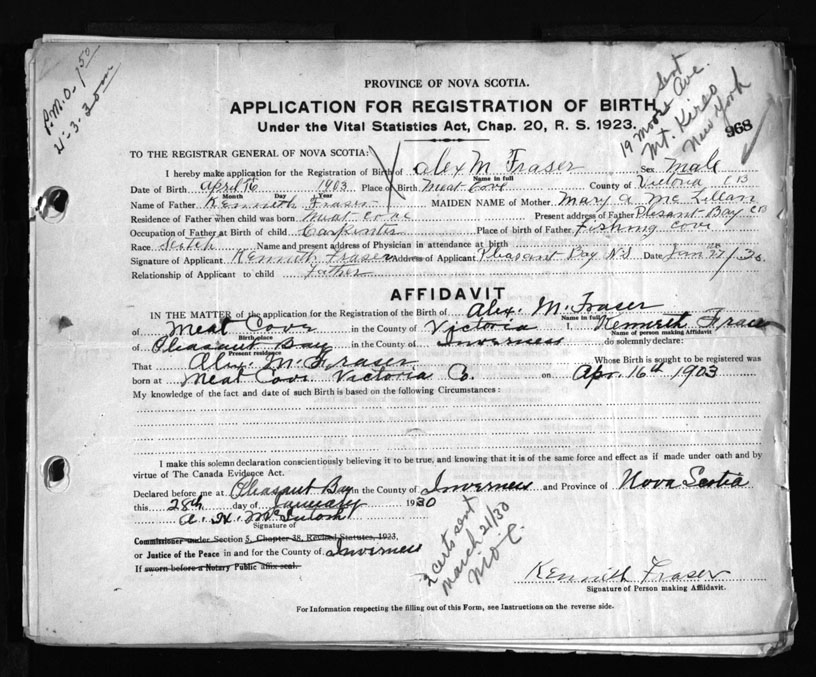 P.M.O. 1.50
21-3-30
PROVINCE OF NOVA SCOTIA.
APPLICATION FOR REGISTRATION OF BIRTH
Under the Vital Statistics Act, Chap. 20, R. S. 1923.
Sent
19 Moose Ave.
Mt. Kisco
New York
968
TO THE REGISTRAR GENERAL OF NOVA SCOTIA:
I hereby make application for the Registration of Birth of Alex M Fraser Sex Male
Name in full
Date of Birth April 16 1903 Place of Birth Meat Cove County of Victoria CB
Month Day Year
Name of Father Kenneth Fraser MAIDEN NAME of Mother Mary A. Mc Lellan
Residence of Father when child was born Meat Cove Present address of Father Plesant Bay CB
Occupation of Father at Birth of child Carpinter Place of Birth of Father Fishing Cove
Race Scotch Name and present address of Physician in attendance at birth
Signature of Applicant Kennith Fraser Address of Applicant Pleasant Bay N.S Date Jan 27/30
Relationship of Applicant to child Father
AFFIDAVIT
IN THE MATTER of the application for the Registration of the Birth of Alex. M. Fraser
Name in full
of Meat Cove in the County of Victoria I, Kenneth Fraser
Birth place Name of person making Affidavit
of Pleasant Bay in the County of Inverness do solemnly declare:
Present residence
That Alex. M. Fraser Whose Birth is sought to be registered was
born at Meat Cove Victoria C.B. on Apr. 16th 1903
My knowledge of the fact and date of such Birth is based on the following Circumstances:
I make this solemn declaration conscientiously believing it to be true, and knowing that it is of the same force and effect as if made under oath and by
virtue of The Canada Evidence Act.
Declared before me at Pleasant Bay in the County of Inverness and Province of Nova Scotia
this 28th day of January 1930
A. H. McIntosh
Signature of
Commissioner under Section 5, Chapter 38, Revised Statutes, 1923,
or Justice of the Peace in and for the County of Inverness
If sworn before a Notary Public affix seal.
2 certs sent
March 21/30
M.O.C.
Kennith Fraser
Signature of Person making Affidavit.
For Information respecting the filling out of this Form, see Instructions on the reverse side.